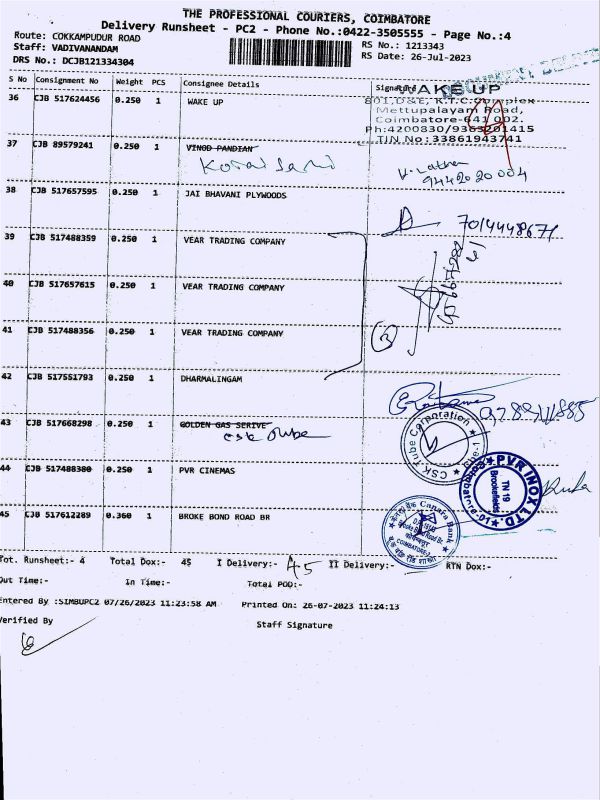 THE PROFESSIONAL COURIERS, COIMBATORE
Delivery Runsheet - PC2 - Phone No.:0422-3505555 - Page No.:4
Route: COKKAMPUDUR ROAD
Staff: VADIVANANDAM
DRS No.: DCJB121334304
RS No.: 1213343
RS Date: 26-Jul-2023
S No Consignment No Weight PCS Consignee Details Signature
36 CJB 517624456 0.250 1 WAKE UP
WAKE UP
801, D&E, K.T.C. Complex
Mettupalayam Road,
Coimbatore-641 002.
Ph:4200330/9363201415
TIN No:33861943741
37 CJB 89579241 0.250 1 VINOD PANDIAN
9442020004
38 CJB 517657595 0.250 1 JAI BHAVANI PLYWOODS
7014448671
39 CJB 517488359 0.250 1 VEAR TRADING COMPANY
40 CJB 517657615 0.250 1 VEAR TRADING COMPANY
41 CJB 517488356 0.250 1 VEAR TRADING COMPANY
3
42 CJB 517551793 0.250 1 DHARMALINGAM
43 CJB 517668298 0.250 1 GOLDEN GAS SERIVE
CSK Tube
CSK Tube Corporation
44 CJB 517488380 0.250 1 PVR CINEMAS
PVR INOX LTD.
TN 19
Brookefields
45 CJB 517612289 0.360 1 BROKE BOND ROAD BR
Canara Bank
Tot. Runsheet:- 4 Total Dox:- 45 I Delivery:- 45 II Delivery:- RTN Dox:-
Out Time:- In Time:- Total POD:-
Entered By :SIMBUPC2 07/26/2023 11:23:58 AM Printed On: 26-07-2023 11:24:13
Verified By Staff Signature